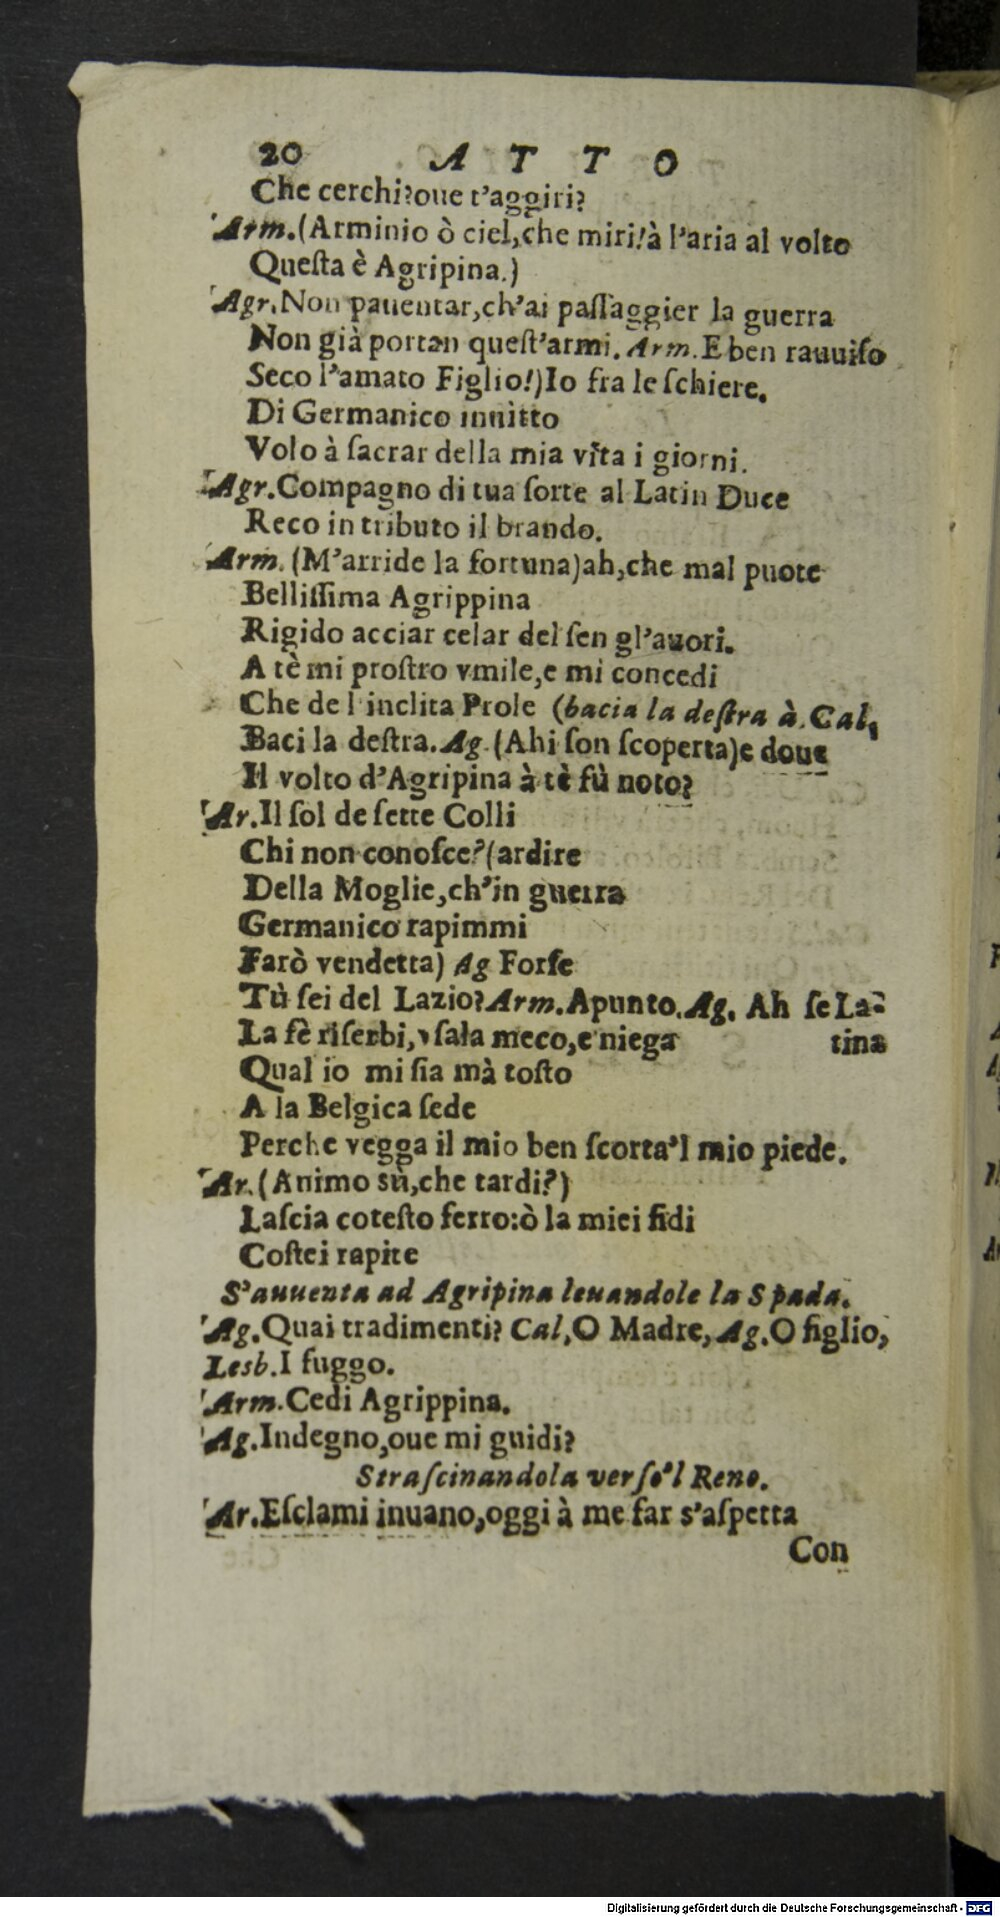 20 ATTO
Che cerchi?oue t'aggiri?
Arm.(Arminio ò ciel,che miri!à l'aria al volto
Queſta è Agripina.)
Agr.Non pauentar,ch'ai paſſaggier la guerra
Non già portan queſt'armi. Arm.E ben rauuiſo
Seco l'amato Figlio!)Io fra le ſchiere.
Di Germanico inuitto
Volo à ſacrar della mia vita i giorni.
Agr.Compagno di tua ſorte al Latin Duce
Reco in tributo il brando.
Arm.(M'arride la fortuna)ah,che mal puote
Belliſſima Agrippina
Rigido acciar celar del ſen gl'auori.
A tè mi proſtro vmile,e mi concedi
Che de l'inclita Prole (bacia la deſtra à Cal,
Baci la deſtra. Ag.(Ahi ſon ſcoperta)e doue
Il volto d'Agripina à tè fù noto?
Ar.Il ſol de ſette Colli
Chi non conoſce?(ardire
Della Moglie,ch'in guerra
Germanico rapimmi
Farò vendetta) Ag Forſe
Tù ſei del Lazio?Arm.Apunto.Ag. Ah ſe La-
La fè riſerbi, vſala meco,e niega tina
Qual io mi ſia mà toſto
A la Belgica ſede
Perche vegga il mio ben ſcorta'l mio piede.
Ar.(Animo sù,che tardi?)
Laſcia coteſto ferro:ò la miei fidi
Coſtei rapite
S'auuenta ad Agripina leuandole la Spada.
Ag.Quai tradimenti? Cal,O Madre, Ag.O figlio,
Lesb.I fuggo.
Arm.Cedi Agrippina.
Ag.Indegno,oue mi guidi?
Straſcinandola verſo'l Reno.
Ar.Eſclami inuano,oggi à me far s'aſpetta
Con
Digitalisierung gefördert durch die Deutsche Forschungsgemeinschaft - DFG